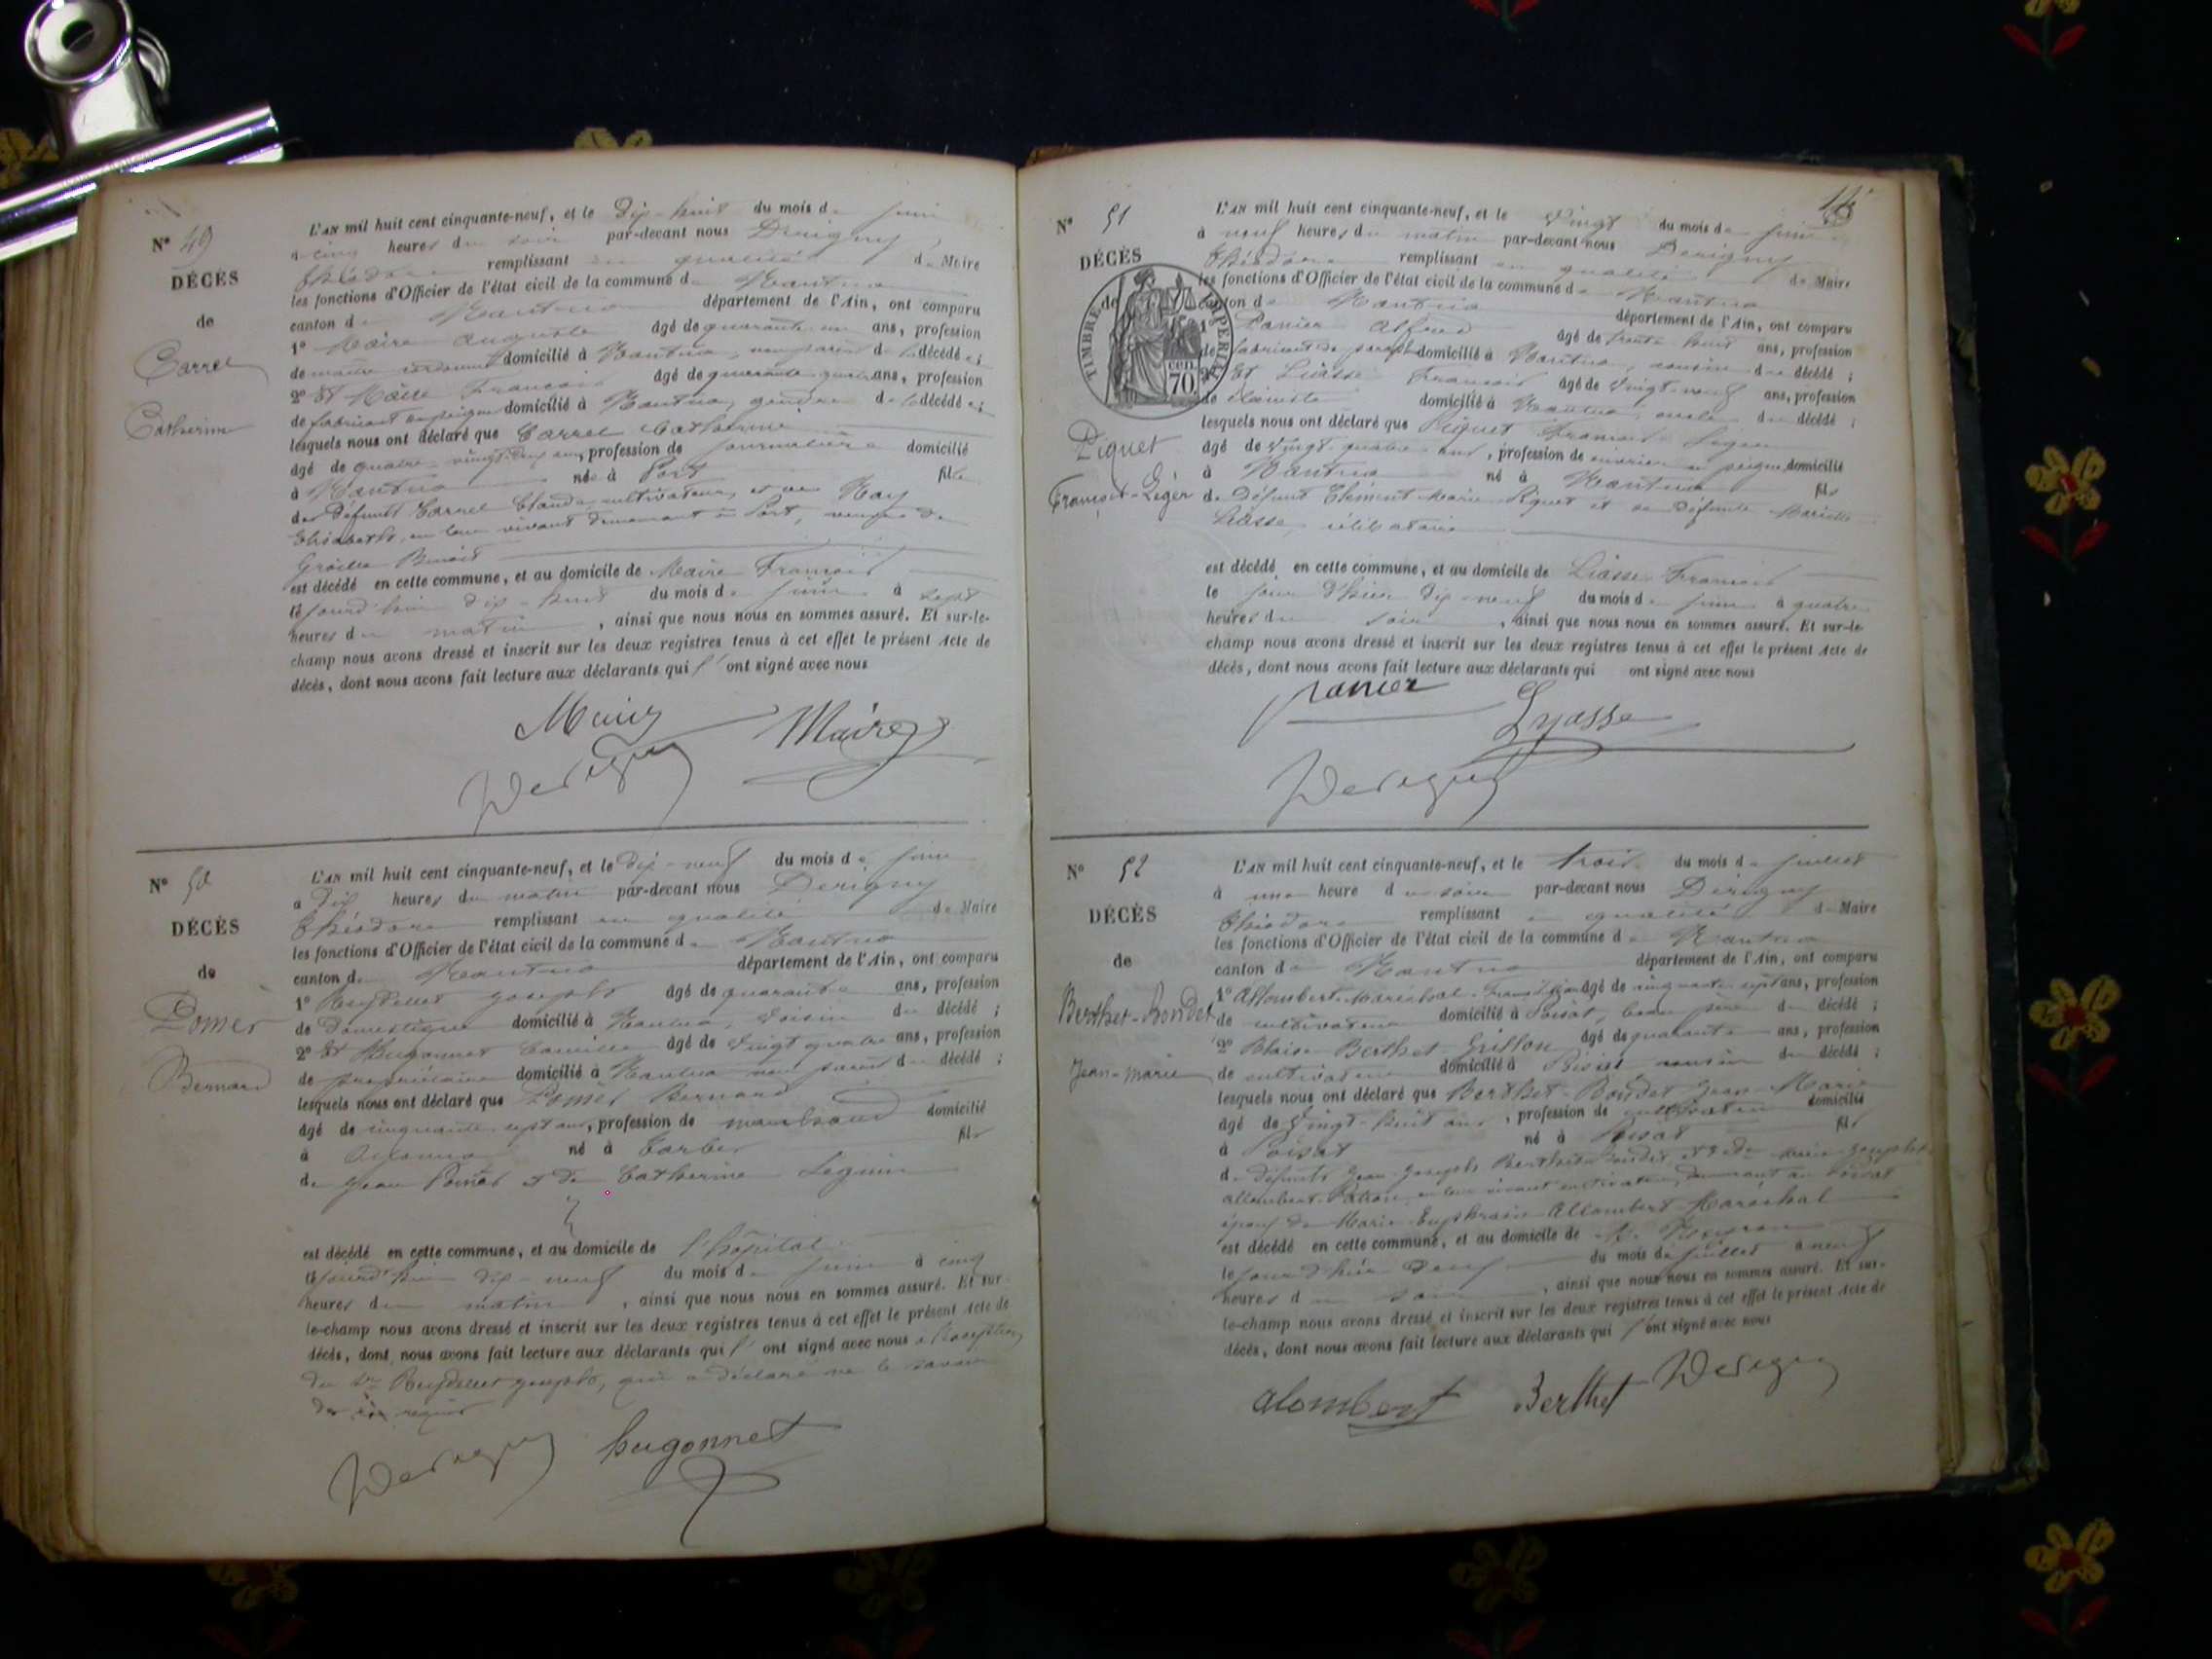 N° 49
DÉCÈS
de
Carrel
Catherine
L'AN mil huit cent cinquante-neuf, et le dix-huit du mois de juin
à cinq heures du soir par-devant nous Derigny
Théodore remplissant en qualité de Maire
les fonctions d'Officier de l'état civil de la commune de Nantua
canton de Nantua département de l'Ain, ont comparu
1° Maire Auguste âgé de quarante un ans, profession
de domicilié à Nantua, non parent de la décédée ;
2° Et Maire François âgé de quarante quatre ans, profession
de fabricant de peignes domicilié à Nantua, gendre de la décédée ;
lesquels nous ont déclaré que Carrel Catherine
âgé de quatre-vingt-deux ans, profession de journalière domicilié
à Nantua née à Port fille
des défunts Carrel Claude, cultivateur, et de Hay
Elisabeth, en leur vivant demeurant à Port, veuve de
Benoit
est décédé en cette commune, et au domicile de Maire François
le jourd'hui dix-huit du mois de juin à sept
heures du matin, ainsi que nous nous en sommes assuré. Et sur-le-
champ nous avons dressé et inscrit sur les deux registres tenus à cet effet le présent Acte de
décès, dont nous avons fait lecture aux déclarants qui l'ont signé avec nous
Maire Maire
Derigny
N° 50
DÉCÈS
de
Pomès
Bernard
L'AN mil huit cent cinquante-neuf, et le dix-neuf du mois de juin
à dix heures du matin par-devant nous Derigny
Théodore remplissant en qualité de Maire
les fonctions d'Officier de l'état civil de la commune de Nantua
canton de Nantua département de l'Ain, ont comparu
1° Reydellet Joseph âgé de quarante ans, profession
de domestique domicilié à Nantua, voisin du décédé ;
2° Et Hugonnet Camille âgé de vingt quatre ans, profession
de propriétaire domicilié à Nantua non parent du décédé ;
lesquels nous ont déclaré que Pomès Bernard
âgé de cinquante-sept ans, profession de marchand domicilié
à Oyonnax né à Tarbes fils
de Jean Pomès et de Catherine Seguin
est décédé en cette commune, et au domicile de l'hôpital
le jourd'hui dix-neuf du mois de juin à cinq
heures du matin, ainsi que nous nous en sommes assuré. Et sur-
le-champ nous avons dressé et inscrit sur les deux registres tenus à cet effet le présent Acte de
décès, dont nous avons fait lecture aux déclarants qui l'ont signé avec nous à l'exception
du Sr Reydellet Joseph, qui a déclaré ne le savoir
de ce requis
Derigny hugonnet
N° 51
DÉCÈS
de
TIMBRE IMPÉRIAL
70 cen
Piquet
François-Léger
L'AN mil huit cent cinquante-neuf, et le vingt du mois de juin
à neuf heures du matin par-devant nous Derigny
Théodore remplissant en qualité de Maire
les fonctions d'Officier de l'état civil de la commune de Nantua
canton de Nantua département de l'Ain, ont comparu
1° Panier Alfred âgé de trente huit ans, profession
de fabricant de domicilié à Nantua, cousin du décédé ;
2° Et Liasse François âgé de vingt-neuf ans, profession
de domicilié à Nantua, oncle du décédé ;
lesquels nous ont déclaré que Piquet François Léger
âgé de vingt-quatre ans, profession de ouvrier en peignes domicilié
à Nantua né à Nantua fils
de défunt Clément Marie Piquet et de défunte Mariette
Liasse, célibataire
est décédé en cette commune, et au domicile de Liasse François
le jour d'hier dix-neuf du mois de juin à quatre
heures du soir, ainsi que nous nous en sommes assuré. Et sur-le-
champ nous avons dressé et inscrit sur les deux registres tenus à cet effet le présent Acte de
décès, dont nous avons fait lecture aux déclarants qui ont signé avec nous
panier
Lyasse
Derigny
N° 52
DÉCÈS
de
Berthet-Bondet
Jean-Marie
L'AN mil huit cent cinquante-neuf, et le trois du mois de juillet
à une heure du soir par-devant nous Derigny
Théodore remplissant en qualité de Maire
les fonctions d'Officier de l'état civil de la commune de Nantua
canton de Nantua département de l'Ain, ont comparu
1° Allombert-Maréchal âgé de cinquante sept ans, profession
de cultivateur domicilié à Poisat, beau père du décédé ;
2° Blaise Berthet-Grillon âgé de quarante ans, profession
de cultivateur domicilié à Poisat cousin du décédé ;
lesquels nous ont déclaré que Berthet-Bondet Jean-Marie
âgé de vingt-huit ans, profession de cultivateur domicilié
à Poisat né à Poisat fils
de défunts Jean Joseph Berthet-Bondet et de Marie Josephte
Allombert en leur vivant cultivateurs, demeurant au Poisat
époux de Marie Euphrasie Allombert-Maréchal
est décédé en cette commune, et au domicile de
le jour d'hier deux du mois de juillet à neuf
heures du soir, ainsi que nous nous en sommes assuré. Et sur-
le-champ nous avons dressé et inscrit sur les deux registres tenus à cet effet le présent Acte de
décès, dont nous avons fait lecture aux déclarants qui l'ont signé avec nous
alombert Berthet Derigny